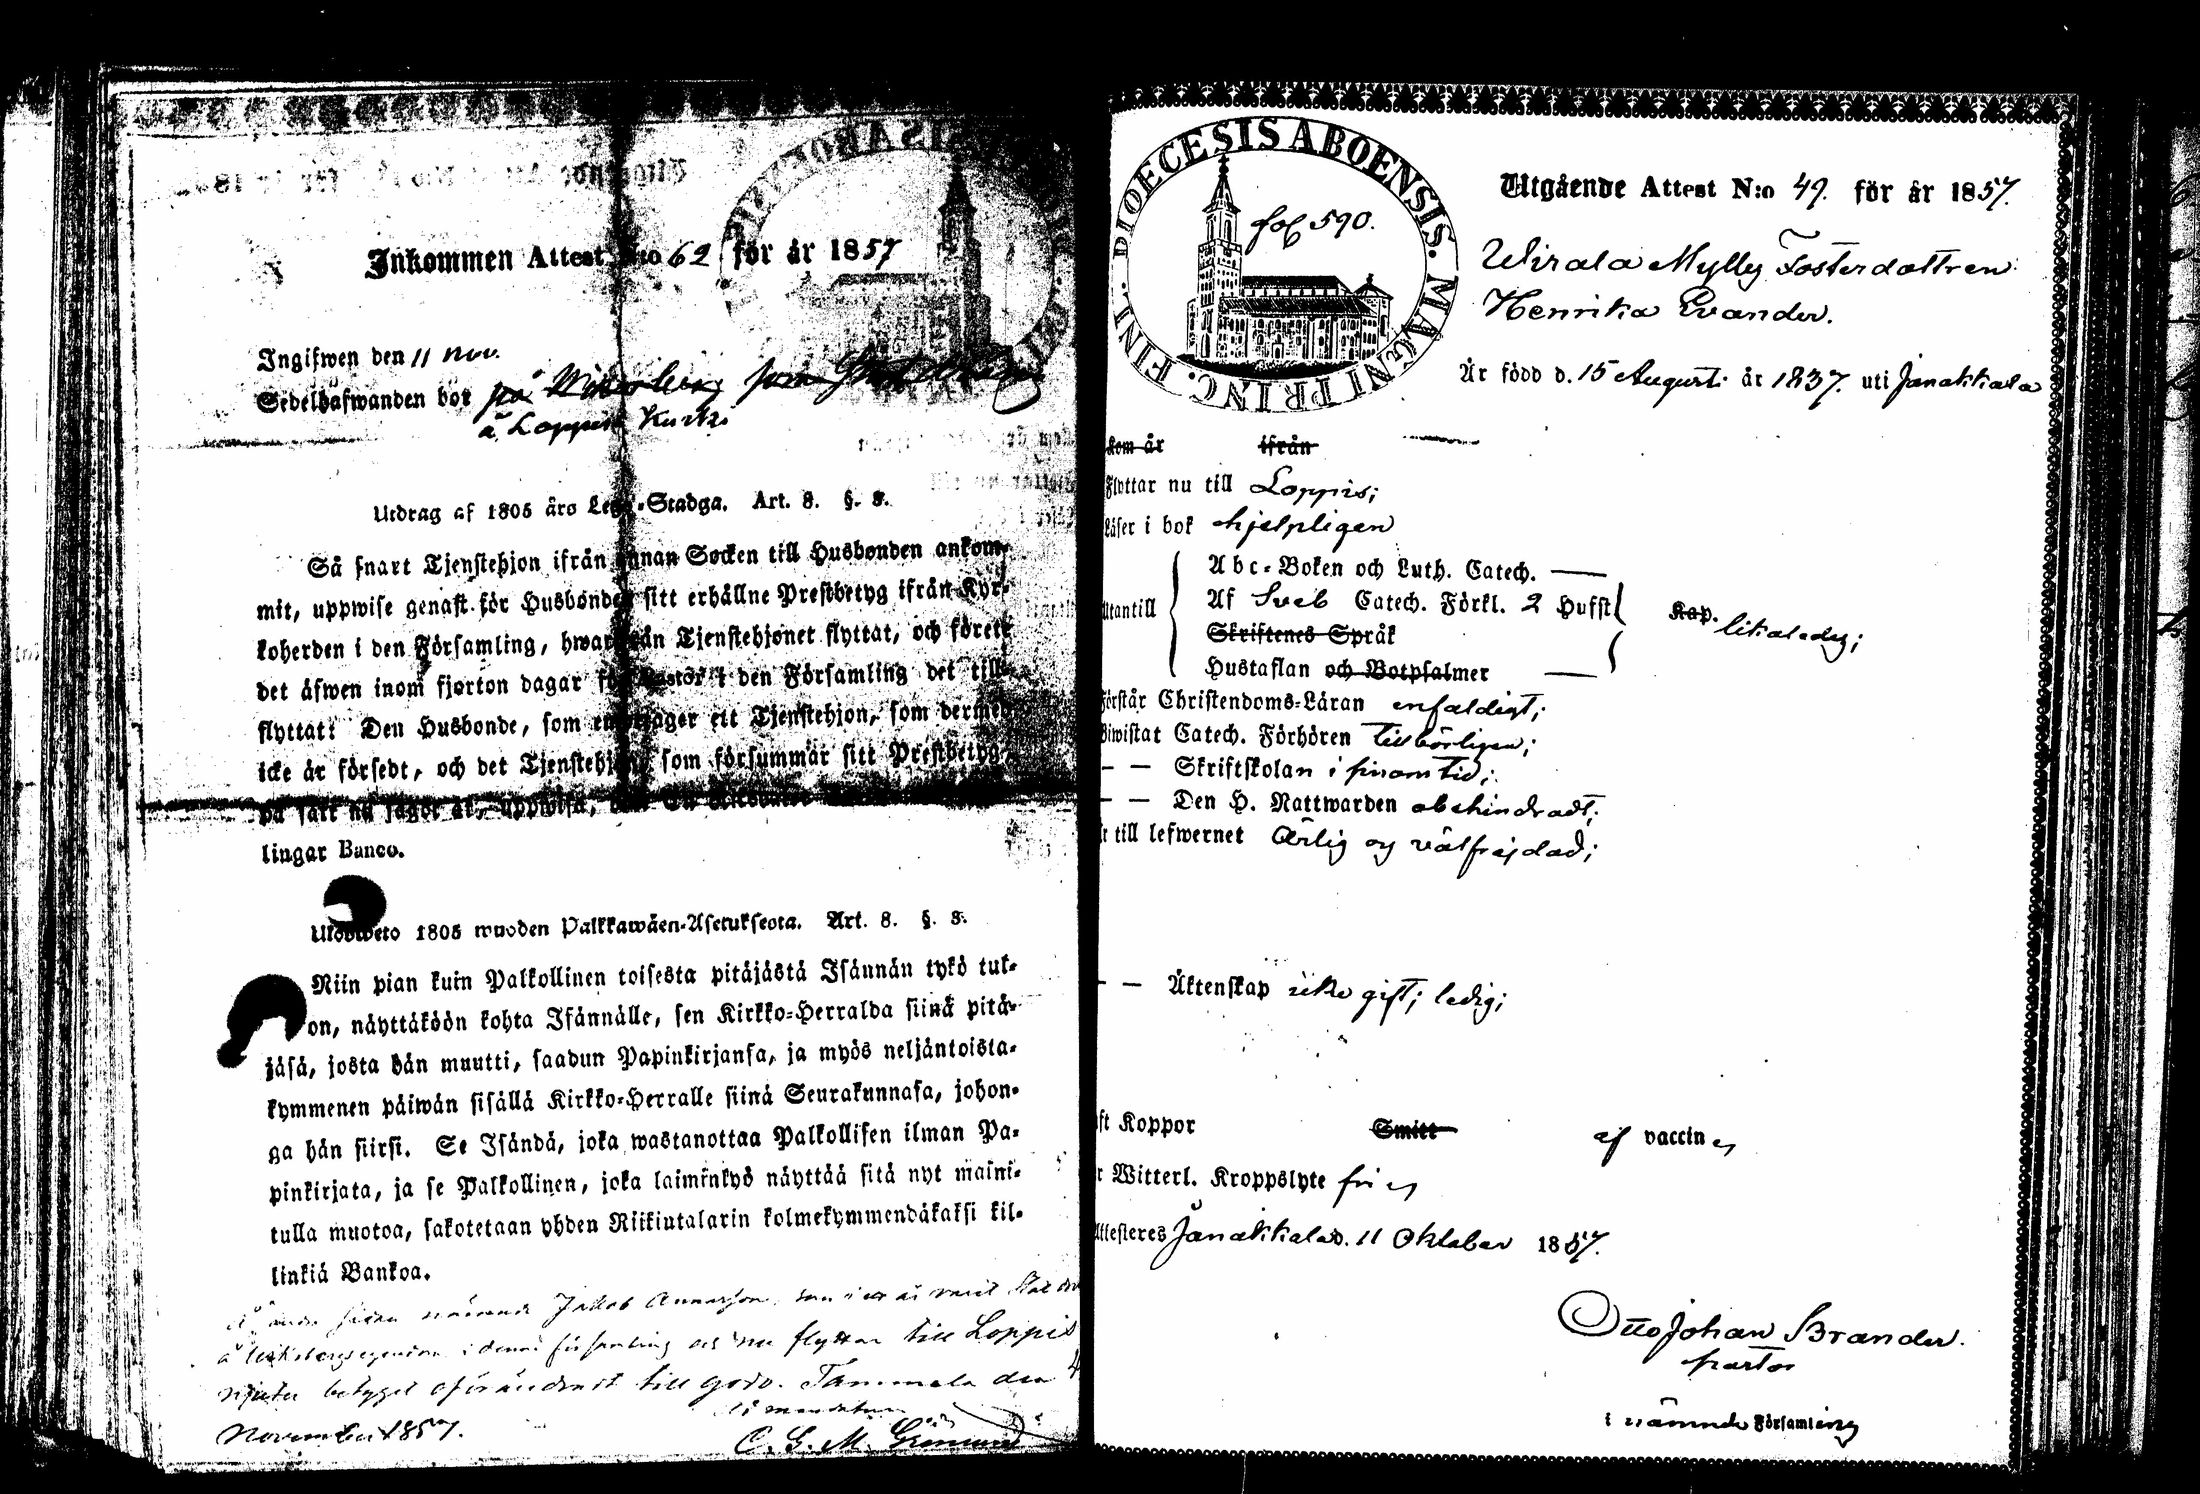 Inkommen Attest N:o 62 för år 1857
Ingifwen den 11 nov.
Sedelhafwanden bor på
å Loppis Kurki
Utdrag af 1805 års Lego-Stadga. Art. 8. §. 8.
Så snart Tjenstehjon ifrån annan Socken till Husbonden ankom-
mit, uppwise genast för Husbonden sitt erhållne Prestbetyg ifrån Kyr-
koherden i den Församling, hwarifrån Tjenstehjonet flyttat, och förete
det äfwen inom fjorton dagar för Pastor i den Församling det till-
flyttat: Den Husbonde, som emottager ett Tjenstehjon, som dermed
icke är försedt, och det Tjenstehjon, som försummar sitt Prestbetyg,
på sätt nu sagdt är, uppwisa,
lingar Banco.
Ulosweto 1805 wuoden Palkkawäen-Asetuksesta. Art. 8. §. 8.
Niin pian kuin Palkollinen toisesta pitäjästä Isännän tykö tul-
on, näyttäköön kohta Isännälle, sen Kirkko-Herralda siinä pitä-
jäsä, josta hän muutti, saadun Papinkirjansa, ja myös neljäntoista-
kymmenen päiwän sisällä Kirkko-Herralle siinä Seurakunnasa, johon-
ga hän siirsi. Se Isändä, joka wastanottaa Palkollisen ilman Pa-
pinkirjata, ja se Palkollinen, joka laiminlyö näyttää sitä nyt maini-
tulla muotoa, sakotetaan yhden Riikiutalarin kolmekymmendäkaksi kil-
linkiä Bankoa.
Å andra sidan nämnde Jakob Annasson, som i ett år varit
i denna församling och nu flyttar till Loppis
njuter betyget oförändradt till godo. Tammela den 4
November 1857.
C. G. M.
DIOECESIS ABOENSIS. MAGNI PRINC. FINL.
fol 590.
Utgående Attest N:o 49. för år 1857.
Wirala Mylly Fosterdottren
Henrika Evander.
Är född d. 15 Augusti år 1837. uti Janakkala
kom år ifrån
Flyttar nu till Loppis;
Läser i bok hjelpligen
Utantill
Abc-Boken och Luth. Catech. —
Af Sveb Catech. Förkl. 2 Hufst Kap. likaledes;
Skriftenes Språk
Hustaflan och Botpsalmer —
Förstår Christendoms-Läran enfaldigt;
Biwistat Catech. Förhören tillbörligen;
— — Skriftskolan i sinom tid;
— — Den H. Nattwarden obehindradt;
är till lefwernet Ärlig og välfrejdad;
— — Äktenskap icke gift; ledig;
Haft Koppor Smitt af vaccin
Witterl. Kroppslyte fri
Attesteres Janakkala d. 11 Oktober 1857.
Otto Johan Brander.
pastor
i nämnde Församling